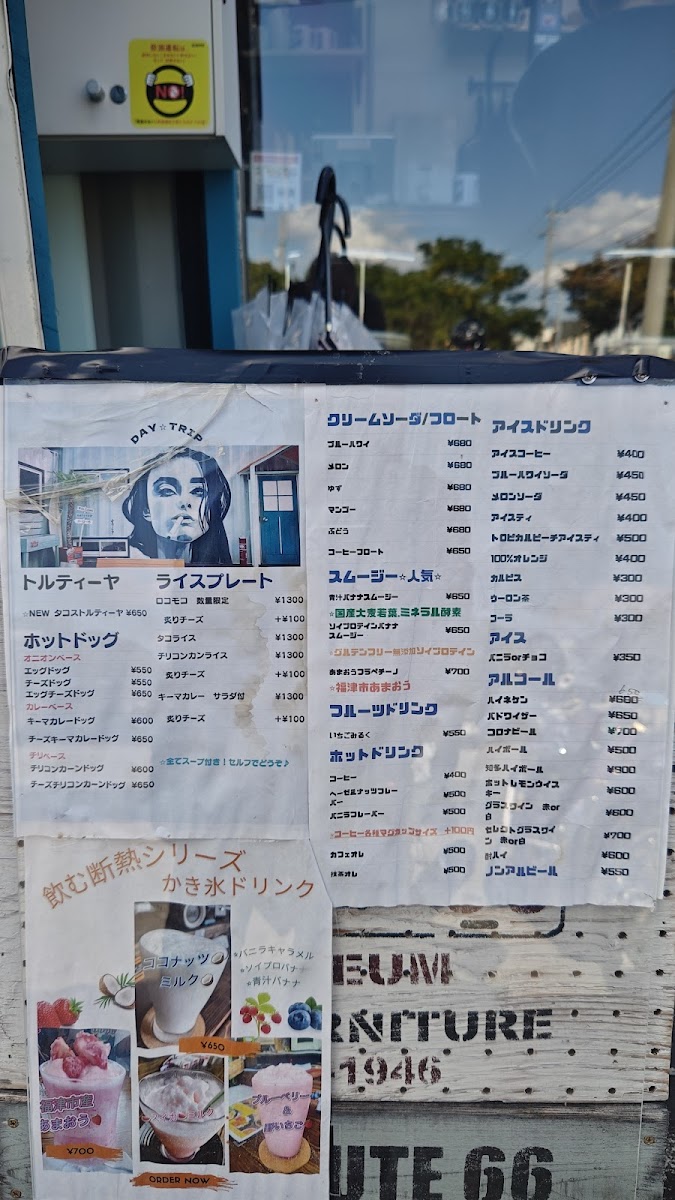 飲酒運転は
NO!
DAY☆TRIP
トルティーヤ
☆NEW タコストルティーヤ ¥650
ホットドッグ
オニオンベース
エッグドッグ ¥550
チーズドッグ ¥550
エッグチーズドッグ ¥650
カレーベース
キーマカレードッグ ¥600
チーズキーマカレードッグ ¥650
チリベース
チリコンカーンドッグ ¥600
チーズチリコンカーンドッグ ¥650
ライスプレート
ロコモコ 数量限定 ¥1300
炙りチーズ +¥100
タコライス ¥1300
チリコンカンライス ¥1300
炙りチーズ +¥100
キーマカレー サラダ付 ¥1300
炙りチーズ +¥100
☆全てスープ付き！セルフでどうぞ♪
クリームソーダ/フロート
ブルーハワイ ¥680
メロン ¥680
ゆず ¥680
マンゴー ¥680
ぶどう ¥680
コーヒーフロート ¥650
スムージー☆人気☆
青汁バナナスムージー ¥650
☆国産大麦若葉,ミネラル酵素
ソイプロテインバナナ
スムージー ¥650
☆グルテンフリー無添加ソイプロテイン
あまおうフラペチーノ ¥700
☆福津市あまおう
フルーツドリンク
いちごみるく ¥550
ホットドリンク
コーヒー ¥400
ヘーゼルナッツフレー
バー ¥500
バニラフレーバー ¥500
☆コーヒー各種マグカップサイズ +100円
カフェオレ ¥500
抹茶オレ ¥500
アイスドリンク
アイスコーヒー ¥400
ブルーハワイソーダ ¥450
メロンソーダ ¥450
アイスティ ¥400
トロピカルピーチアイスティ ¥500
100%オレンジ ¥400
カルピス ¥300
ウーロン茶 ¥300
コーラ ¥300
アイス
バニラorチョコ ¥350
アルコール
ハイネケン ¥600
バドワイザー ¥650
コロナビール ¥700
ハイボール ¥500
知多ハイボール ¥900
ホットレモンウイス
キー ¥600
グラスワイン 赤or
白 ¥600
セレクトグラスワイ
ン 赤or白 ¥700
酎ハイ ¥600
ノンアルビール ¥550
飲む断熱シリーズ
かき氷ドリンク
ココナッツ
ミルク
¥650
★バニラキャラメル
★ソイプロバナナ
★青汁バナナ
福津市産
あまおう
¥700
ブルーベリー
&
ORDER NOW
EUM
RNITURE
-1946
UTE 66